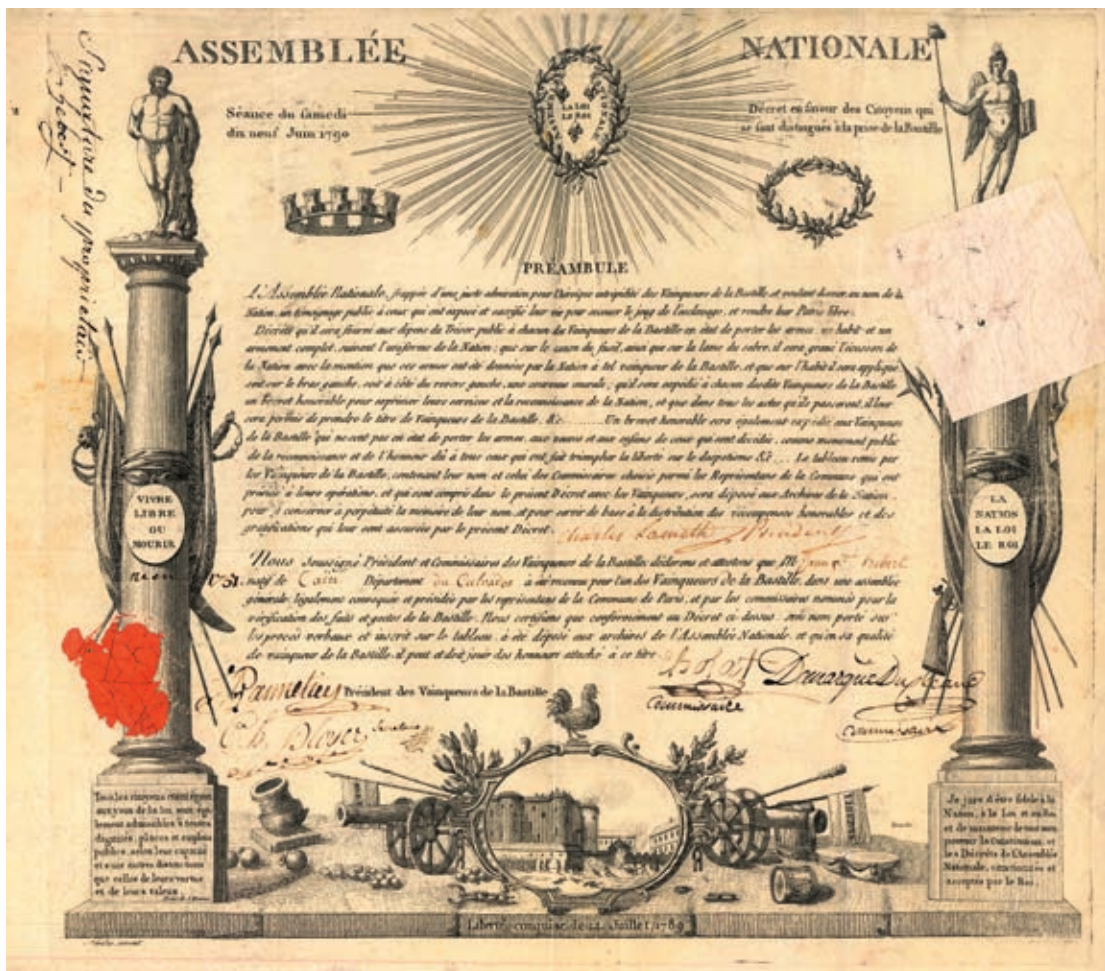 ASSEMBLÉE NATIONALE
Séance du samedi
dix neuf Juin 1790
LA LOI
LE ROI
Décret en faveur des Citoyens qui
se sont distingués à la prise de la Bastille
Signature du propriétaire
PRÉAMBULE
L'Assemblée Nationale, frappée d'une juste admiration pour l'héroïque intrépidité des Vainqueurs de la Bastille et voulant donner au nom de la
Nation, un témoignage public à ceux qui ont exposé et sacrifié leur vie pour secouer le joug de l'esclavage, et rendre leur Patrie libre.
Décrète qu'il sera fourni aux dépens du Trésor public à chacun des Vainqueurs de la Bastille en état de porter les armes, un habit et un
armement complet, suivant l'uniforme de la Nation; que sur le canon du fusil, ainsi que sur la lame du sabre, il sera gravé l'écusson de
la Nation avec la mention que ces armes ont été données par la Nation à tel vainqueur de la Bastille, et que sur l'habit il sera appliqué
soit sur le bras gauche, soit à côté du revers gauche, une couronne murale; qu'il sera expédié à chacun desdits Vainqueurs de la Bastille
un Brevet honorable pour exprimer leurs services et la reconnoissance de la Nation, et que dans tous les actes qu'ils passeront, il leur
sera permis de prendre le titre de Vainqueurs de la Bastille. &c. Un brevet honorable sera également expédié aux Vainqueurs
de la Bastille qui ne sont pas en état de porter les armes, aux veuves et aux enfans de ceux qui sont décédés, comme monument public
de la reconnoissance et de l'honneur dû à tous ceux qui ont fait triompher la liberté sur le despotisme &c. Le tableau remis par
les Vainqueurs de la Bastille, contenant leur nom et celui des Commissaires choisis parmi les Représentans de la Commune qui ont
présidé à leurs opérations, et qui sont compris dans le présent Décret avec les Vainqueurs, sera déposé aux Archives de la Nation
pour y conserver à perpétuité la mémoire de leur nom, et pour servir de base à la distribution des récompenses honorables et des
gratifications qui leur sont assurées par le présent Décret. Charles Lameth Président
Nous soussigné Président et Commissaires des Vainqueurs de la Bastille, déclarons et attestons que M.
natif de Caen Département du Calvados a été reconnu pour l'un des Vainqueurs de la Bastille, dans une assemblée
générale, légalement convoquée et présidée par les représentans de la Commune de Paris, et par les commissaires nommés pour la
vérification des faits et gestes de la Bastille. Nous certifions que conformément au Décret ci-dessus, son nom porté sur
les procès verbaux et inscrit sur le tableau, à été déposé aux archives de l'Assemblée Nationale, et qu'en sa qualité
de vainqueur de la Bastille, il peut et doit jouir des honneurs attaché à ce titre
Président des Vainqueurs de la Bastille
Commissaire
Commissaire
VIVRE
LIBRE
OU
MOURIR
LA
NATION
LA LOI
LE ROI
Tous les citoyens étant égaux
aux yeux de la loi, sont éga-
lement admissibles à toutes
dignités, places et emplois
publics, selon leur capacité
et sans autres distinctions
que celles de leurs vertus
et de leurs talens.
Je jure d'être fidele à la
Nation, à la Loi et au Roi
et de maintenir de tout mon
pouvoir la Constitution, et
les Décrets de l'Assemblée
Nationale, sanctionnés et
acceptés par le Roi.
Liberté conquise le 14 Juillet 1789